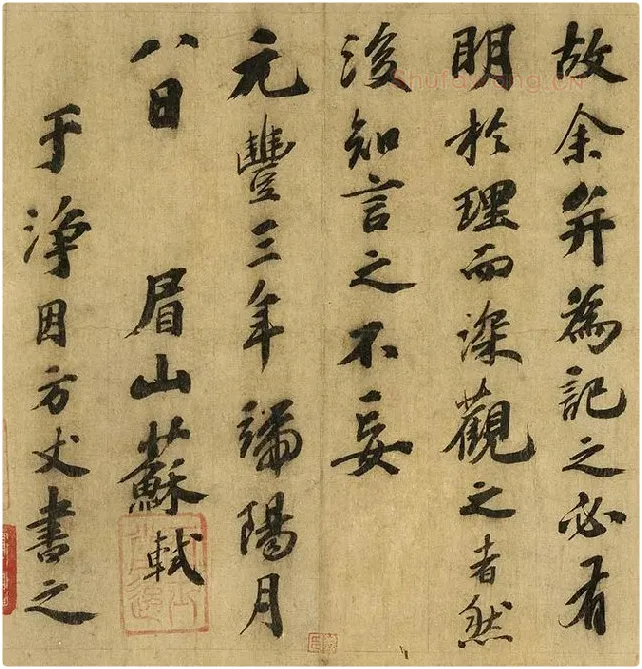 故余并為記之必有
明於理而深觀之者然
後知言之不妄
元豐三年端陽月
八日　眉山蘇軾
于淨因方丈書之